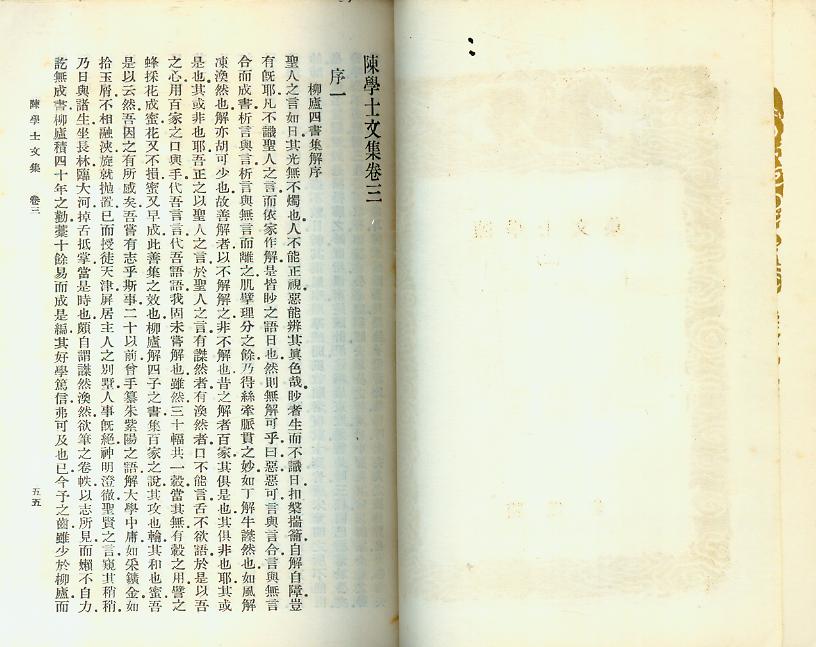 陳學士文集卷三
序一
柳廬四書集解序
聖人之言如日其光無不燭也人不能正視惡能辨其真色哉眇者生而不識日扣槃揣籥自解自障豈
有旣耶凡不識聖人之言而依家作解是皆眇之語日也然則無解可乎曰惡惡可言與言合言與無言
合而成書析言與言析言與無言而離之肌擘理分之餘乃得絲牽脈貫之妙如丁解牛謋然也如風解
凍渙然也解亦胡可少也故善解者以不解解之非不解也昔之解者百家其俱是也其俱非也耶其或
是也其或非也耶吾正之以聖人之言於聖人之言有謋然者有渙然者口不能言舌不欲語於是以吾
之心用百家之口與手代吾言言代吾語語我固未嘗解也雖然三十輻共一轂當其無有轂之用譬之
蜂採花成蜜花又不損蜜又早成此善集之效也柳廬解四子之書集百家之說其攻也輸其和也蜜吾
是以云然吾因之有所感矣吾嘗有志乎斯事二十以前曾手纂朱紫陽之語解大學中庸如采鑛金如
拾玉屑不相融浹旋就抛置已而授徒天津屏居主人之別墅人事旣絕神明澄徹聖賢之言窺其稍稍
乃日與諸生坐長林臨大河掉舌抵掌當是時也頗自謂謋然渙然欲筆之卷帙以志所見而嬾不自力
訖無成書柳廬積四十年之勤藁十餘易而成是編其好學篤信弗可及也已今予之齒雖少於柳廬而
陳學士文集 卷三
五五